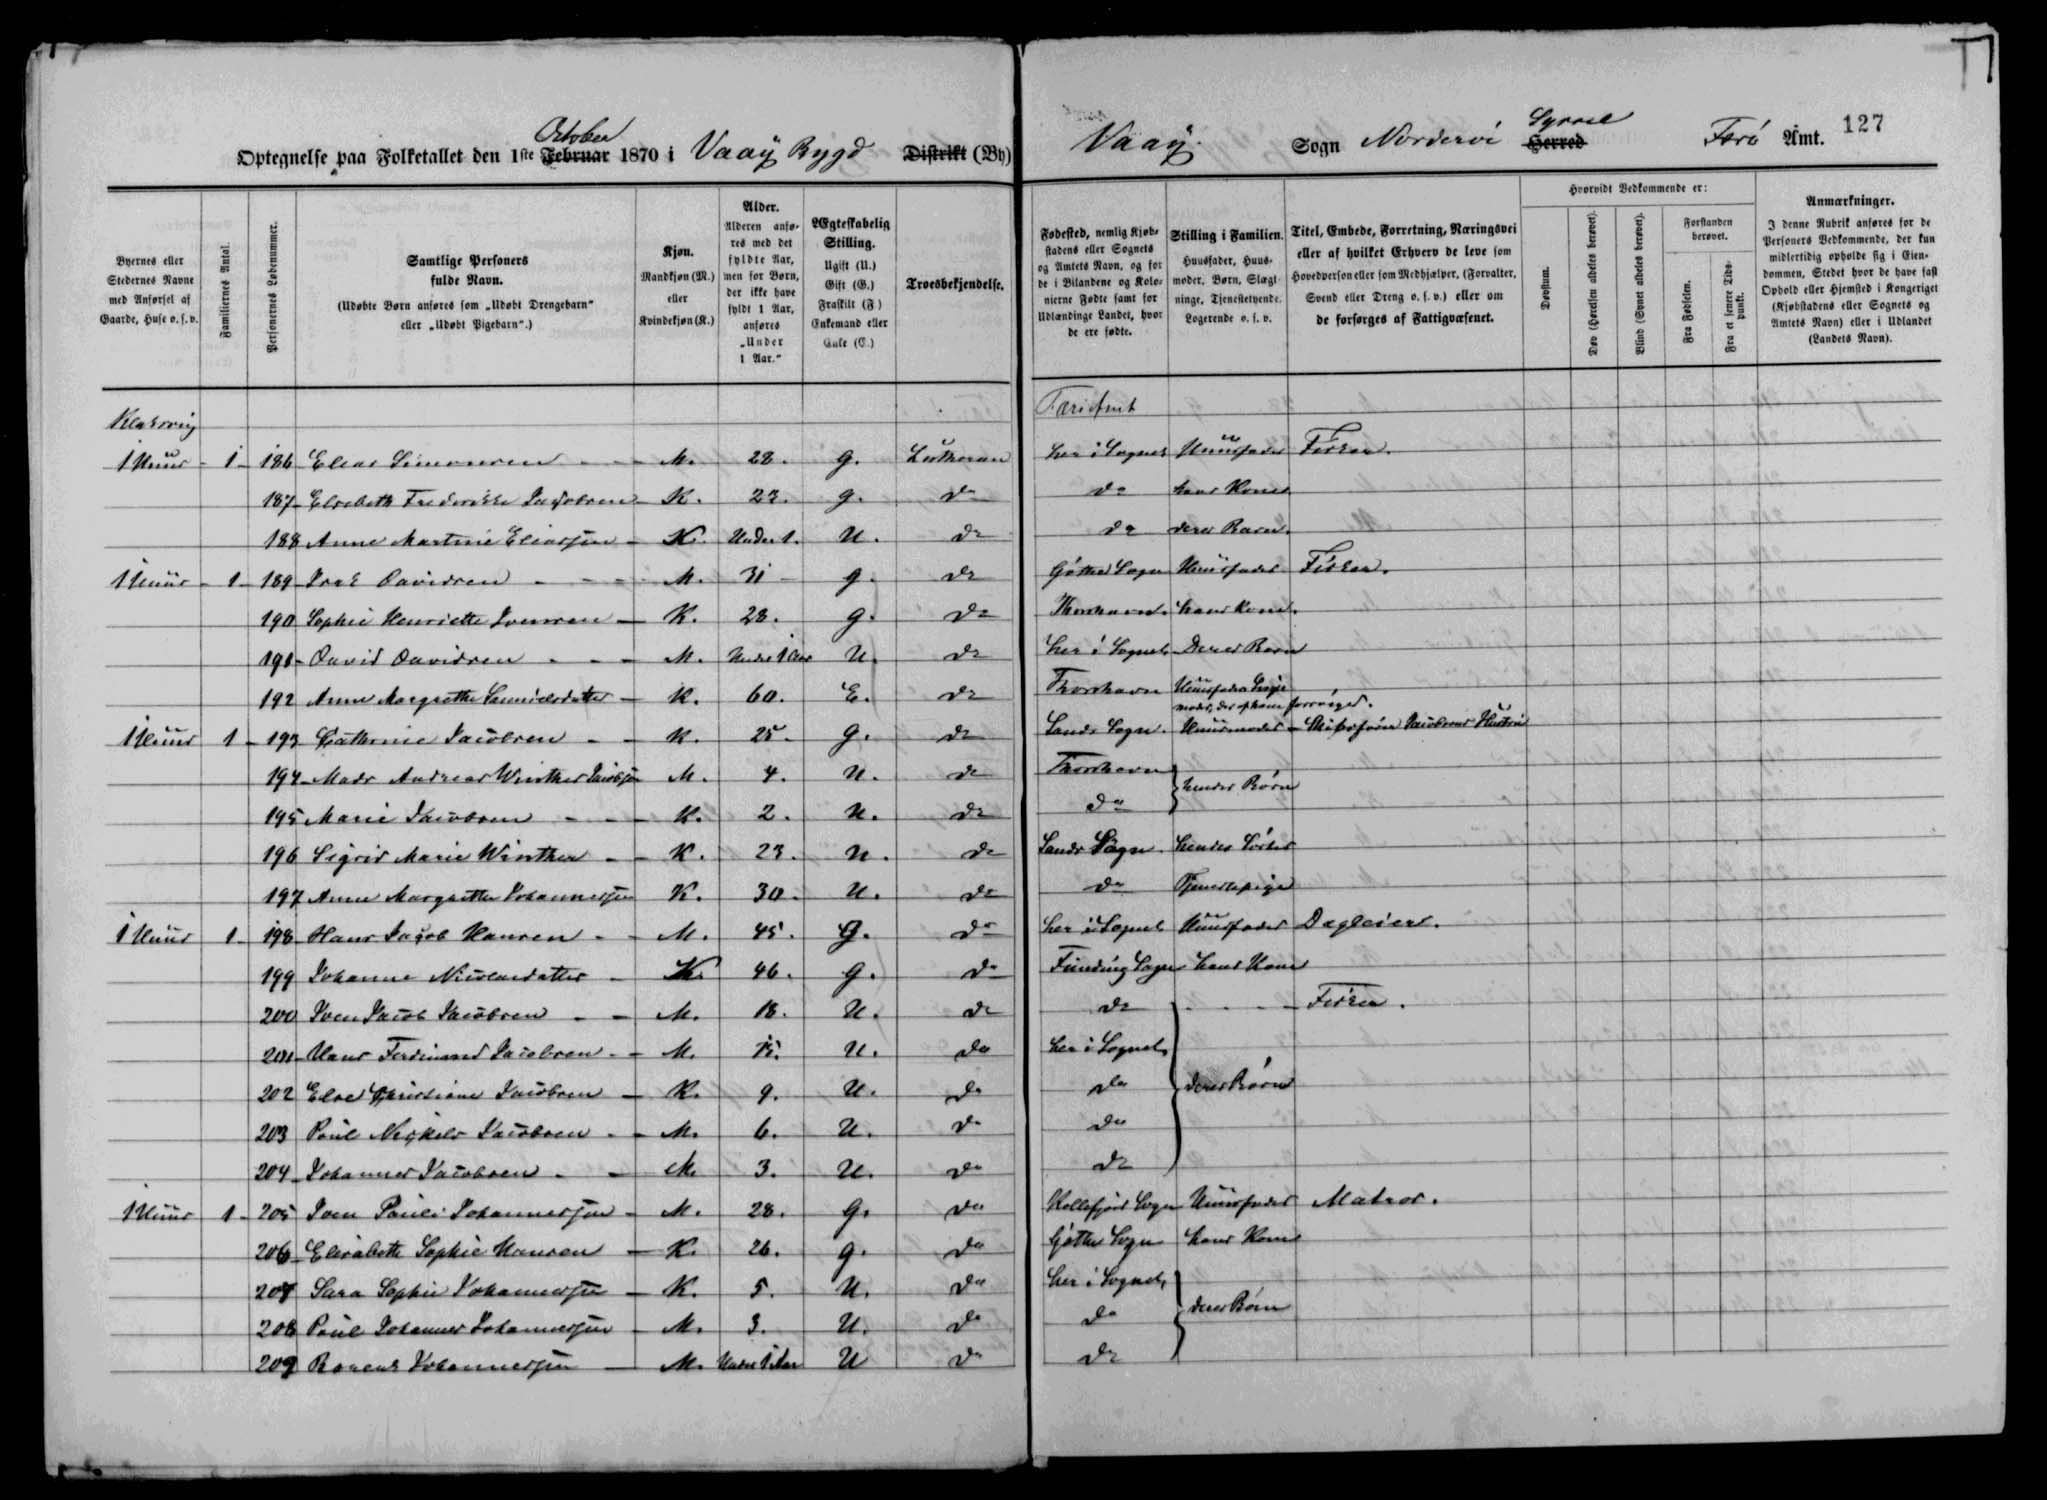 October
Optegnelse paa Folketallet den 1ste Februar 1870 i Vaaÿ Bygd Distrikt (By)
Vaaÿ. Sogn Norderöi Herred Syssel Færö Amt. 127
Byernes eller Stedernes Navne med Anførsel af Gaarde, Huse o. s. v.
Familiernes Antal.
Personernes Løbenummer.
Samtlige Personers fulde Navn.
(Udøbte Børn anføres som „Udøbt Drengebarn“ eller „Udøbt Pigebarn“.)
Kjøn. Mandkjøn (M.) eller Kvindekjøn (K.)
Alder. Alderen anføres med det fyldte Aar, men for Børn, der ikke have fyldt 1 Aar, anføres „Under 1 Aar.“
Ægteskabelig Stilling. Ugift (U.) Gift (G.) Fraskilt (F.) Enkemand eller Enke (E.)
Troesbekjendelse.
Fødested, nemlig Kjøbstadens eller Sognets og Amtets Navn, og for de i Bilandene og Kolonierne Fødte samt for Udlændinge Landet, hvor de ere fødte.
Stilling i Familien. Huusfader, Huusmoder, Børn, Slægtninge, Tjenestetyende. Logerende o. s. v.
Titel, Embede, Forretning, Næringsvei eller af hvilket Erhverv de leve som Hovedperson eller som Medhjælper, (Forvalter, Svend eller Dreng o. s. v.) eller om de forsørges af Fattigvæsenet.
Hvorvidt Vedkommende er:
Døvstum.
Døv (Hørelsen aldeles berøvet).
Blind (Synet aldeles berøvet).
Forstanden berøvet.
Fra Fødselen.
Fra et senere Tidspunkt.
Anmærkninger.
I denne Rubrik anføres for de Personers Vedkommende, der kun midlertidig opholde sig i Eiendommen, Stedet hvor de have fast Ophold eller Hjemsted i Kongeriget (Kjøbstadens eller Sognets og Amtets Navn) eller i Udlandet (Landets Navn).
Klaksvig Færöi Amt
1 Huus - 1 - 186 Elias Simonsen M. 28. g. Lutheran her i Sognet Huusfader Fisker.
187 Elsebeth Frederikke Jacobsen K. 23. g. do do hans Kone
188 Anne Martine Eliassen K. Under 1. U. do do deres Barn.
1 Huus - 1 - 189 Isak Davidsen M. 31 g. do Gøthe Sogn Huusfader Fisker.
190 Sophie Henriette Joensen K. 28. g. do Thorshavn. hans Kone.
191 David Davidsen M. Under 1 Aar U. do her i Sognet Deres Barn
192 Anne Margrethe Samuelsdatter K. 60. E. do Thorshavn Huusfaders Sviger
moder, der af ham forsørges.
1 Huus 1 - 193 Cathrine Jacobsen K. 25. g. do Sands Sogn. Huusmoder - Skibsfører Jacobsens Hustrü
194 Mads Andreas Winther Jacobsen M. 4. U. do Thorshavn
hendes Börn
195 Marie Jacobsen K. 2. U. do do
196 Sigrid Marie Winther K. 23. U. do Sands Sogn hendes Söster
197 Anne Margrethe Johannessen K. 30. U. do do Tjenestepige
1 Huus 1 - 198 Hans Jacob Hansen M. 45. g. do her i Sognet Huusfader Dagleier.
199 Johanne Nicolasdatter K. 46. g. do Funding Sogn hans Kone
200 Joen Jacob Jacobsen M. 18. U. do do Fisker.
201 Hans Ferdinand Jacobsen M. 15. U. do her i Sognet
202 Else Christiane Jacobsen K. 9. U. do do deres Börn
203 Poul Nickels Jacobsen M. 6. U. do do
204 Johannes Jacobsen M. 3. U. do do
1 Huus 1 - 205 Joen Pauli Johannessen M. 28. g. do Kollefjord Sogn Huusfader Matros.
206 Elisabeth Sophie Hansen K. 26. g. do Gøthe Sogn hans Kone
207 Sara Sophie Johannessen K. 5. U. do her i Sognet
deres Börn
208 Poul Johannes Johannessen M. 3. U. do do
209 Rasmus Johannessen M. Under 1 Aar U do do